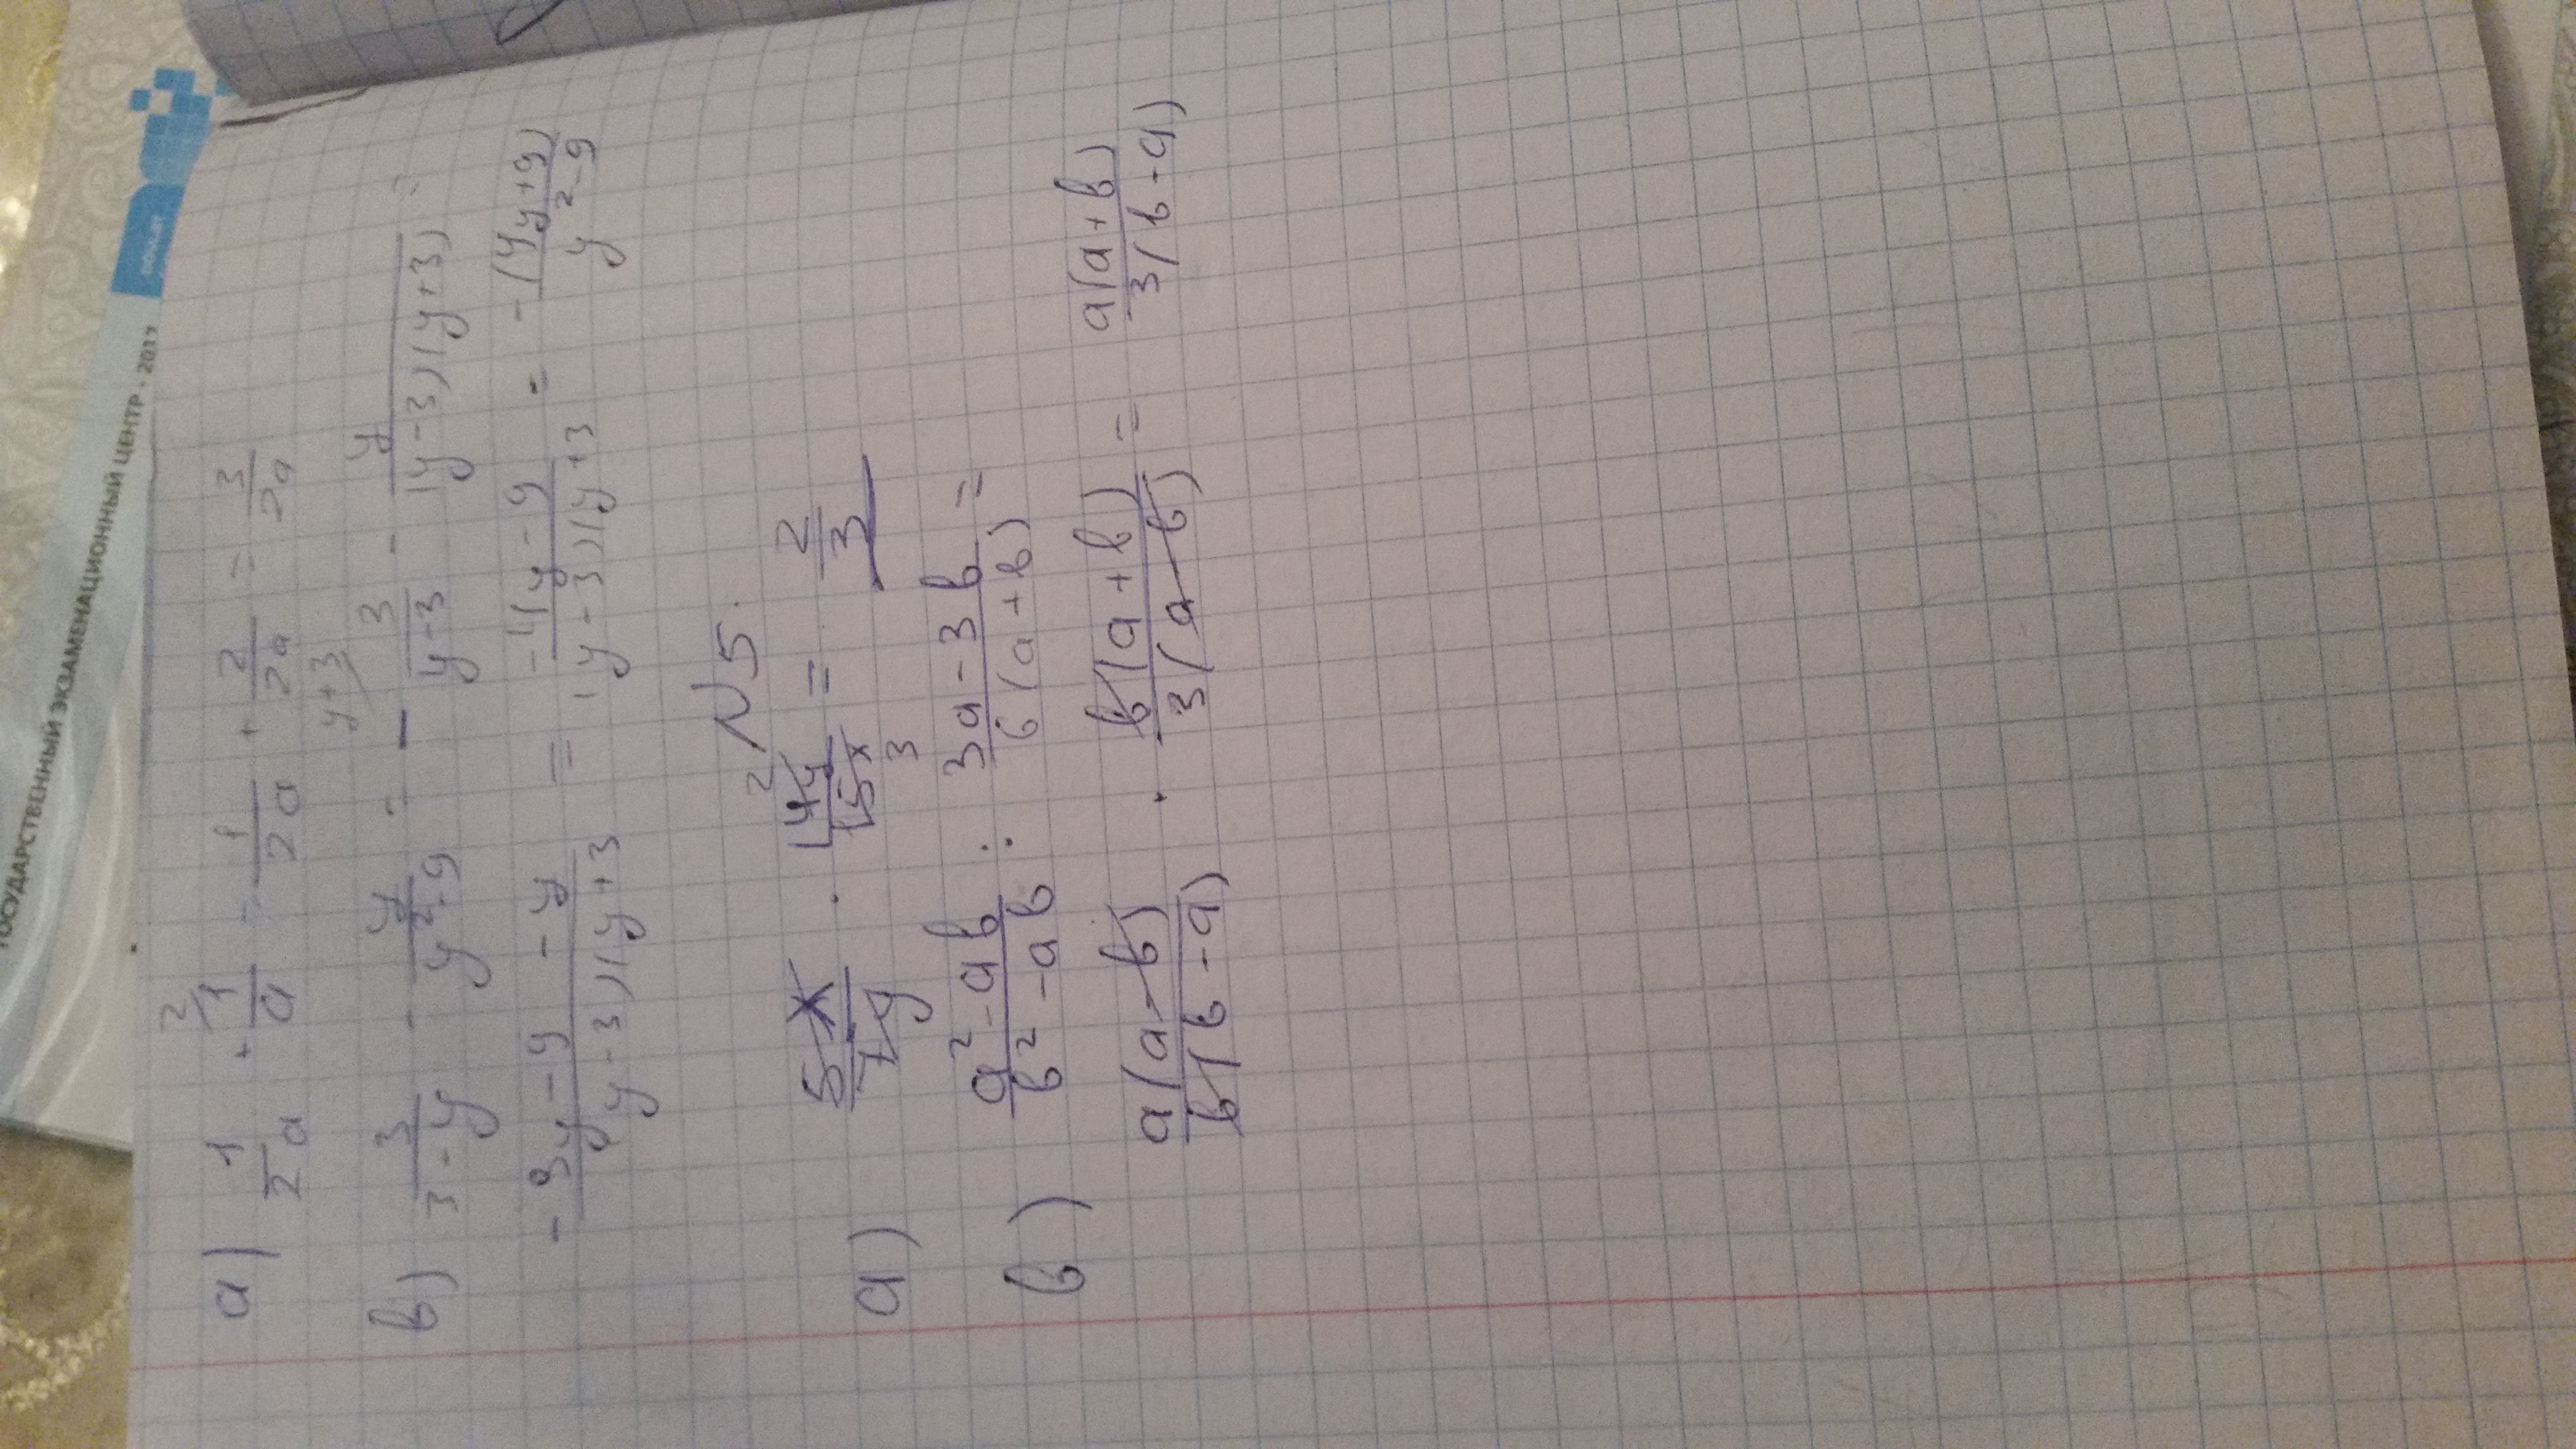 ГОСУДАРСТВЕННЫЙ ЭКЗАМЕНАЦИОННЫЙ ЦЕНТР - 2017
a) 1/2a + 1/a = 1/2a + 2/2a = 3/2a
в) 3/3-y - y/y²-9 = - 3/y-3 - y/(y-3)(y+3) =
-3y-9-y/y-3)(y+3 = -4y-9/(y-3)(y+3 = -(4y+9)/y²-9
N5.
a) 5x/7y · 14y/15x = 2/3
в) a²-aв/в²-aв : 3a-3в/в(a+в) =
a(a-в)/в(в-a) · в(a+в)/3(a-в) = a(a+в)/3(в-a)